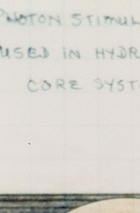 PHOTON STIMUL
USED IN HYDR
CORE SYST